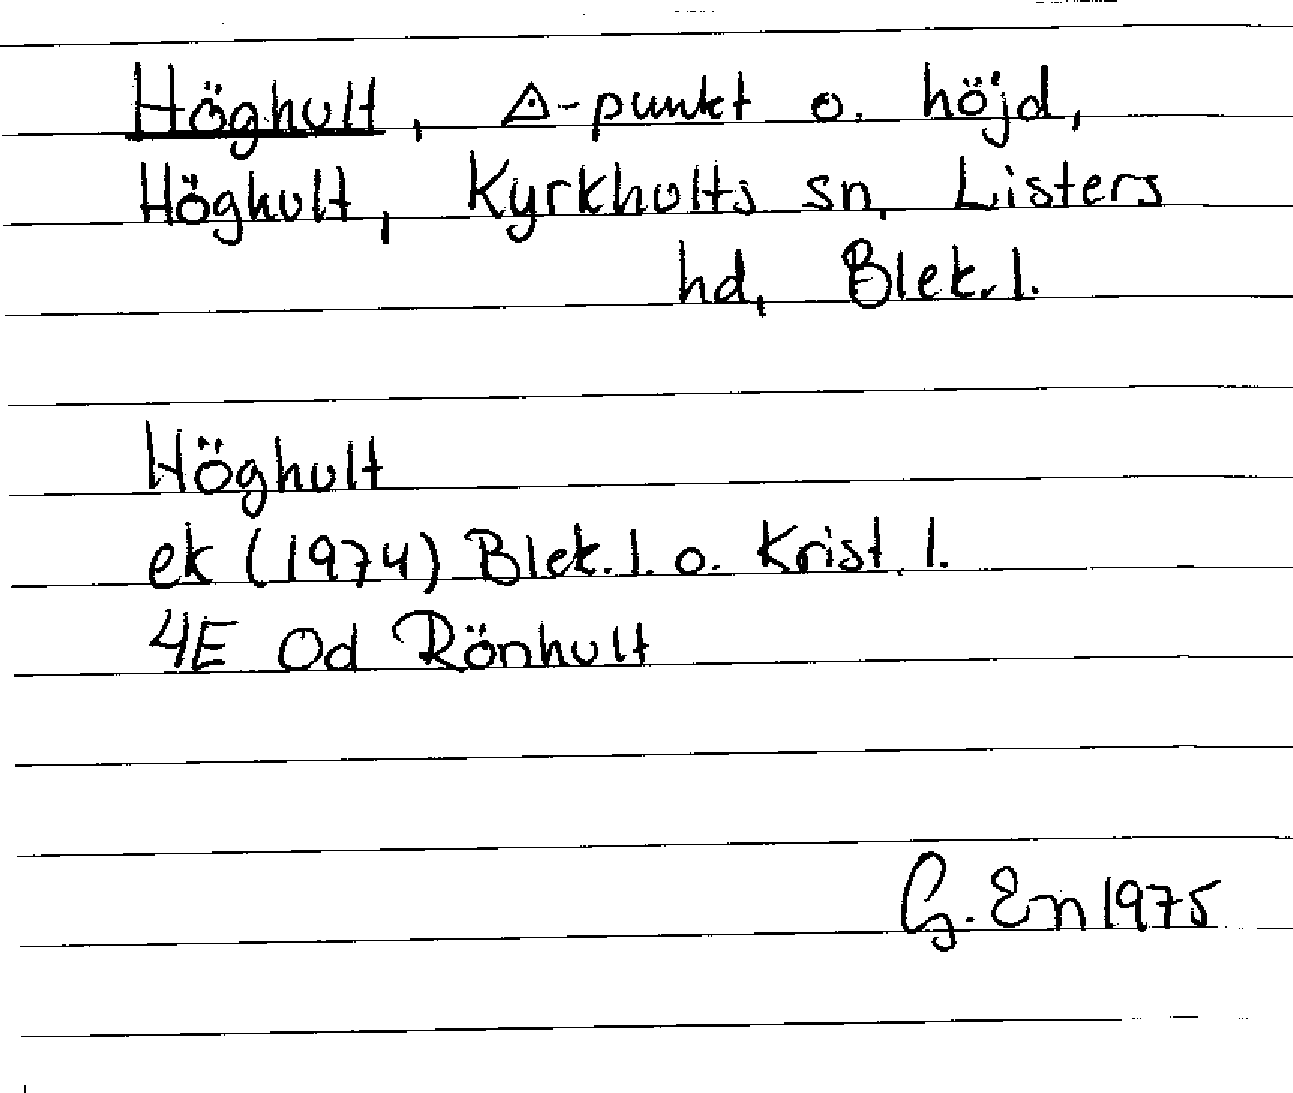 Höghult, △-punkt o. höjd,
Höghult, Kyrkhults sn, Listers
hd, Blek. l.
Höghult
ek (1974) Blek. l. o. Krist. l.
4E 0d Rönhult
G. En 1975